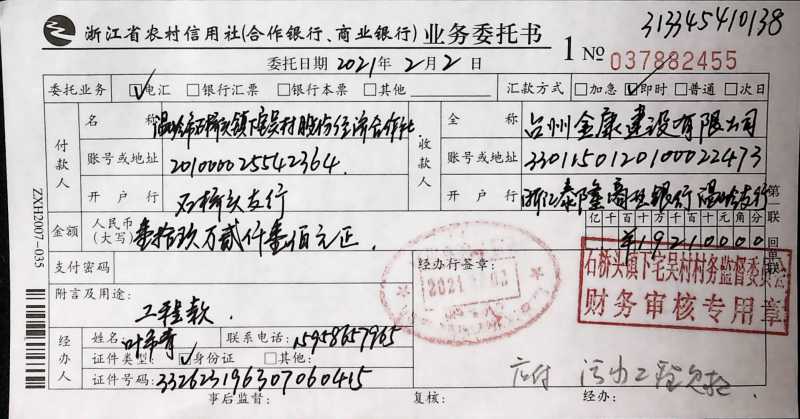 313345410138
浙江省农村信用社(合作银行、商业银行) 业务委托书
1 № 037882455
委托日期 2021年 2月 2日
委托业务 ☑电汇 □银行汇票 □银行本票 □其他 汇款方式 □加急 ☑即时 □普通 □次日
付款人 名称 温岭市石桥头镇下宅吴村股份经济合作社
收款人 全称 台州金康建设有限公司
账号或地址 201000025542364
账号或地址 3301150120100022473
开户行 石桥头支行
开户行 浙江泰隆商业银行温岭支行
金额 人民币(大写) 壹拾玖万贰仟壹佰元正
亿千百十万千百十元角分
¥19210000
第一联 回单联
支付密码
经办行签章:
2021
附言及用途:
工程款
石桥头镇下宅吴村村务监督委员会
财务审核专用章
经办人 姓名 叶 联系电话: 15958657965
证件类型 ☑身份证 □其他:
证件号码: 332623196307060415
应付 污水工程
事后监督: 复核: 经办:
ZXH2007-035